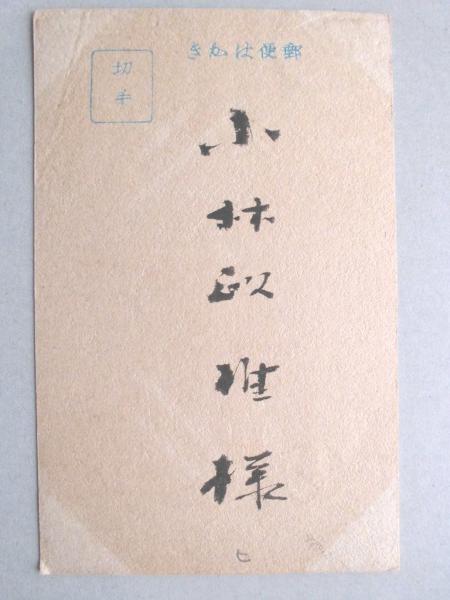 郵便はかき
切手
小林政雄様
ヒ